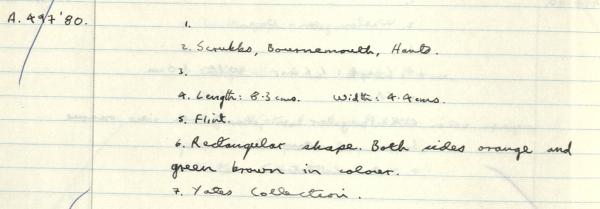 A.497'80.
1.
2. Scrubbs, Bournemouth, Hants.
3.
4. Length: 8.3 cms. Width: 4.4 cms.
5. Flint.
6. Rectangular shape. Both sides orange and
green brown in colour.
7. Yates Collection.